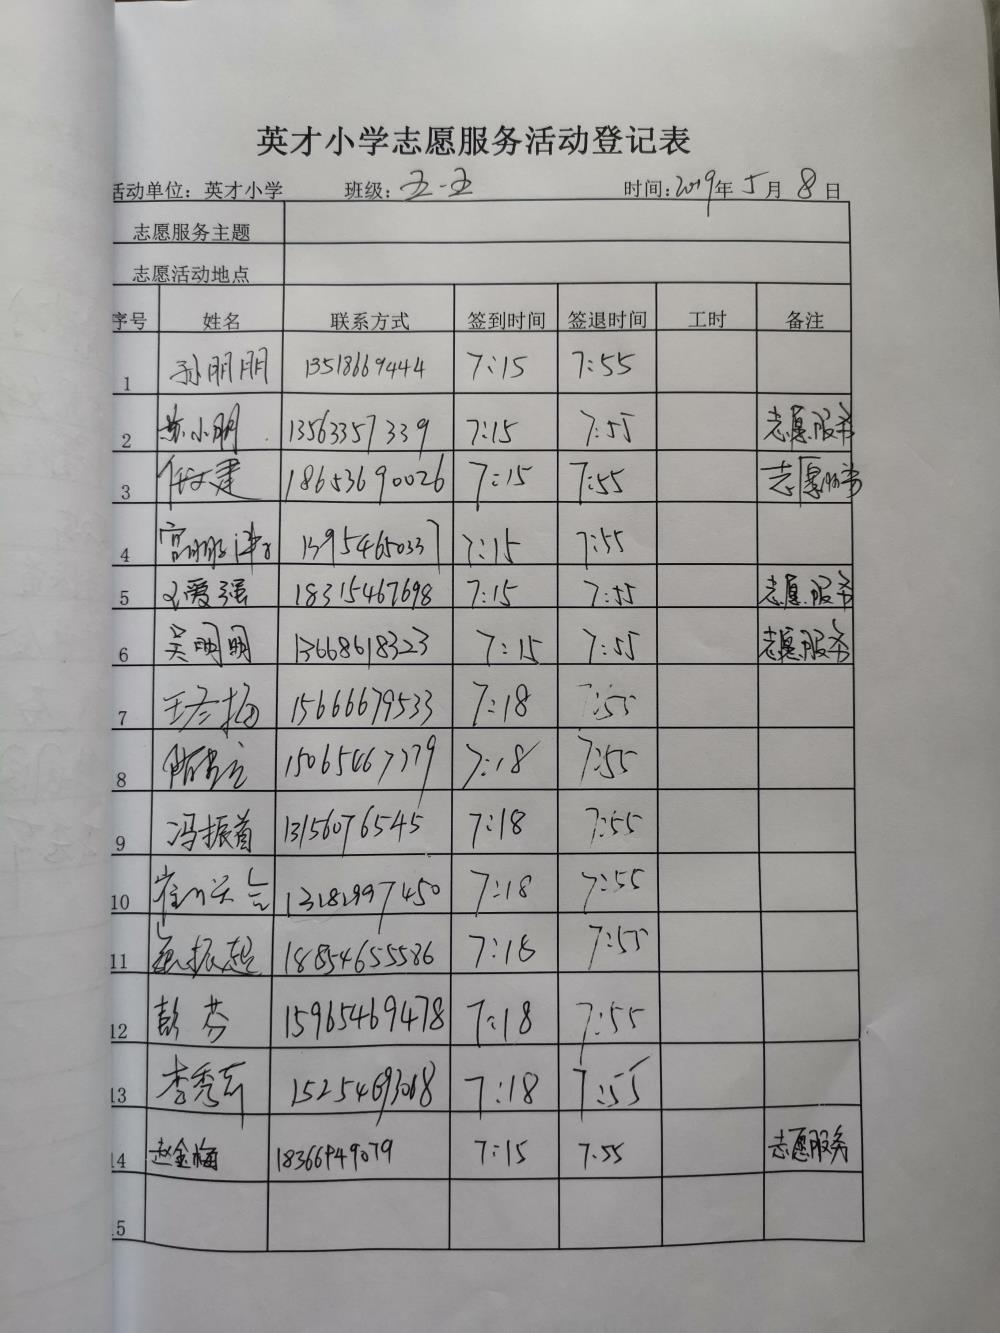 英才小学志愿服务活动登记表
活动单位：英才小学 班级：五-五 时间：2019年5月8日
志愿服务主题
志愿活动地点
序号 姓名 联系方式 签到时间 签退时间 工时 备注
1 孙朋朋 13518669444 7:15 7:55
2 苏小朋 13563357339 7:15 7:55 志愿服务
3 任文建 18653690026 7:15 7:55 志愿服务
4 13954650337 7:15 7:55
5 爱强 18315467698 7:15 7:55 志愿服务
6 吴明明 13668618323 7:15 7:55 志愿服务
7 王彦梅 15666679533 7:18 7:55
8 15065467779 7:18 7:55
9 冯振首 13156076545 7:18 7:55
10 13181997450 7:18 7:55
11 振超 18854655586 7:18 7:55
12 彭芬 15965469478 7:18 7:55
13 李秀 15254693068 7:18 7:55
14 赵金梅 18366949079 7:15 7:55 志愿服务
15